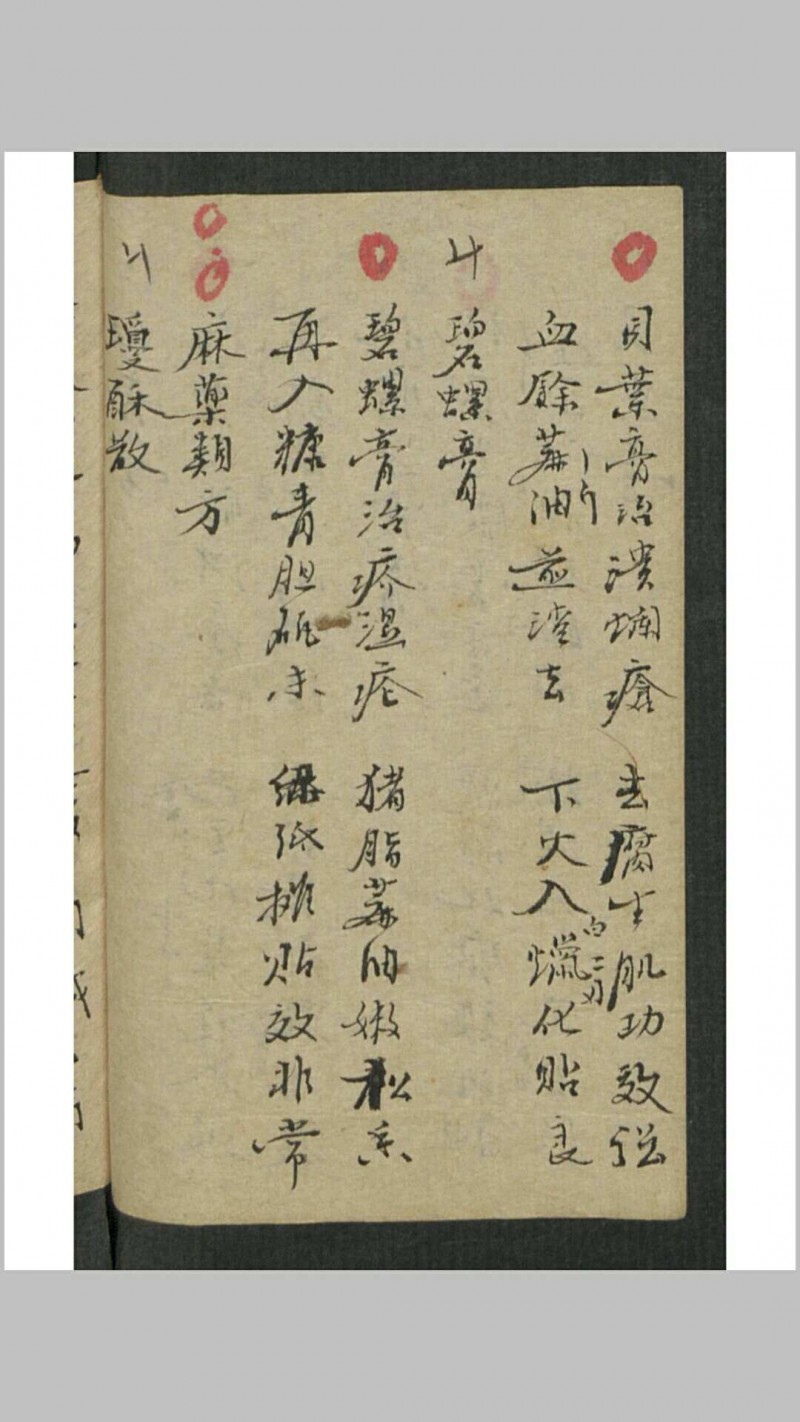 貝葉膏治潰爛瘡 去腐生肌功效强
血餘麻油煎渣去 下火入白蠟化貼良
碧螺膏
碧螺膏治疥濕瘡 猪脂麻油嫩松香
再入糠青胆矾末 綿紙攤貼效非常
麻藥類方
瓊酥散